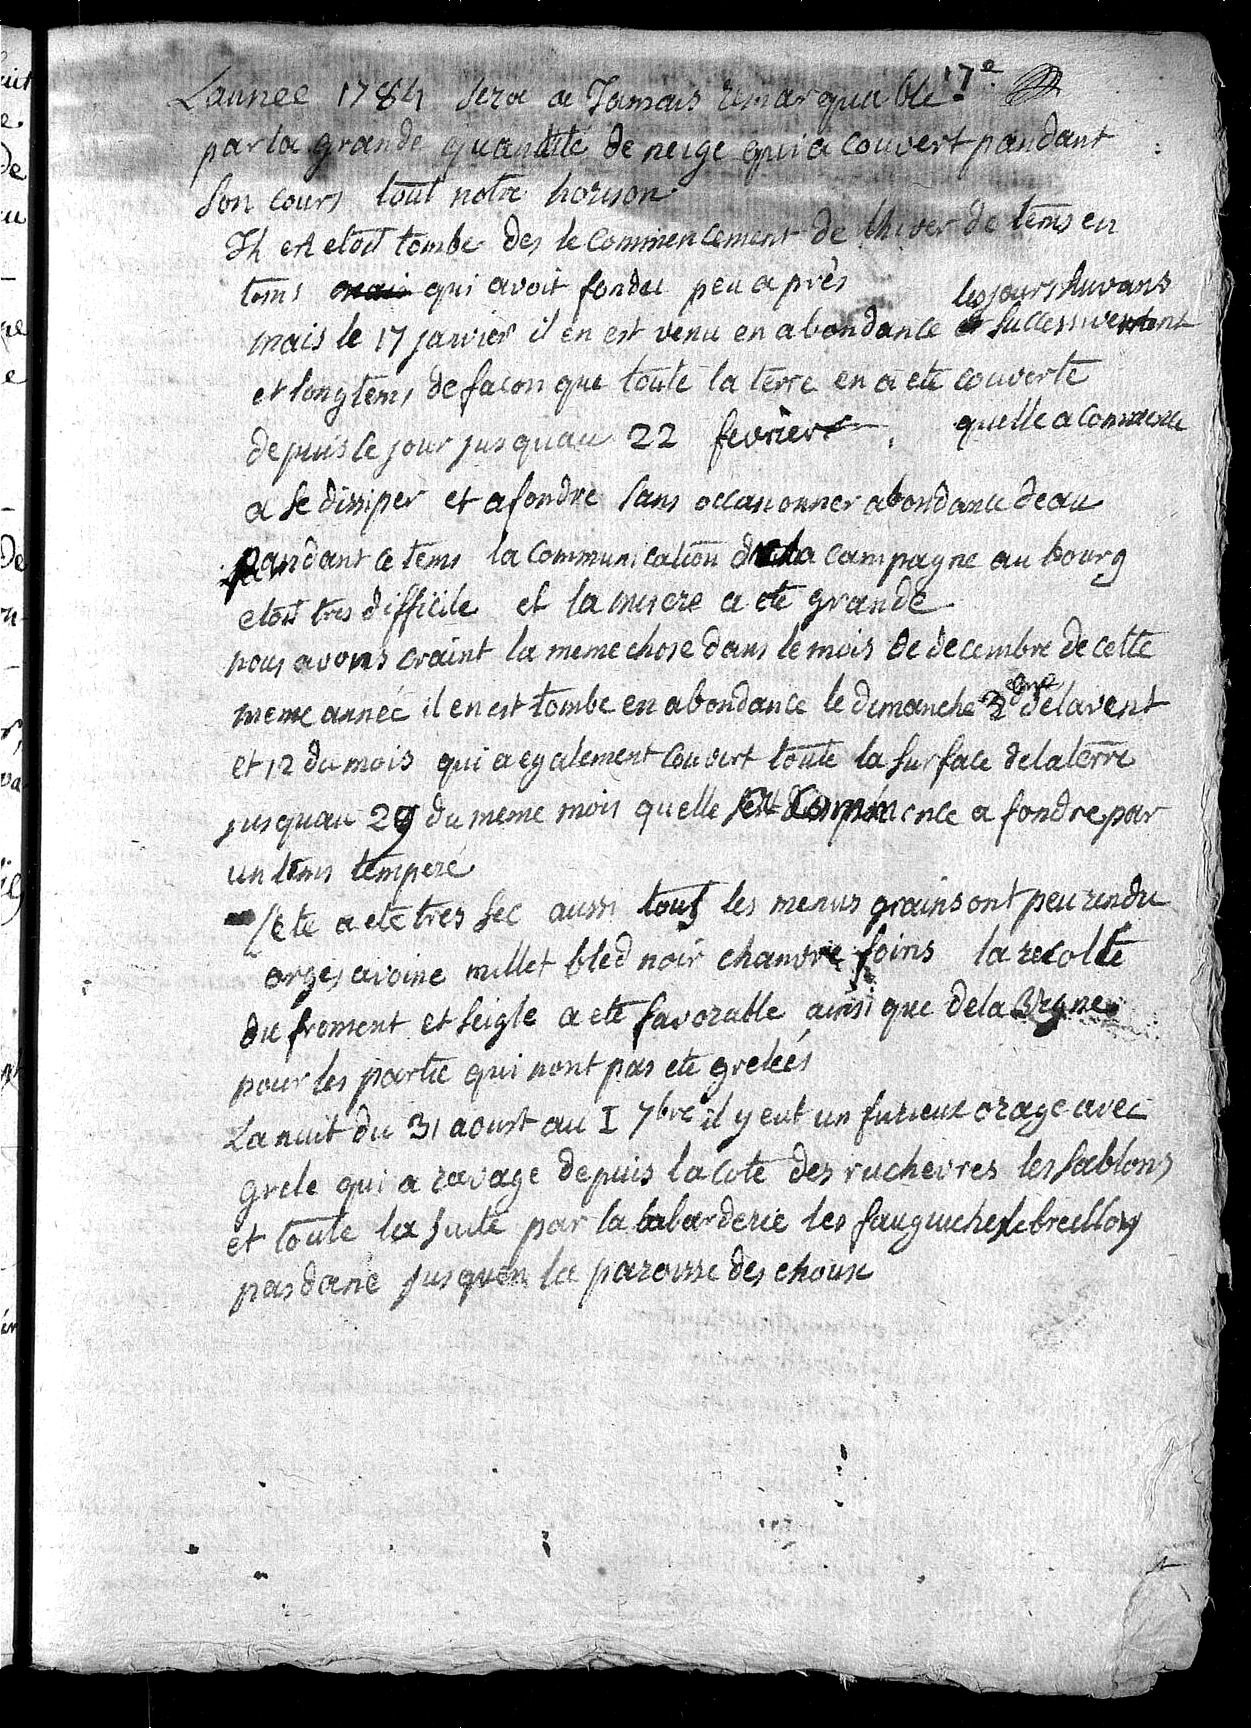 17e
Lannee 1784 sera a Jamais remarquable
par la grande quantité de neige qui a couvert pandant
son cours tout notre horison
Il en etoit tombe des le commencement de lhiver de tems en
tems mais qui avoit fondu peu après
les jours suivans
mais le 17 janvier il en est venu en abondance et successivement
et longtems de facon que toute la terre en a ete couverte
depuis ce jour jusquau 22 fevrier quelle a commencé
a se dissiper et a fondre sans occasionner abondance deau
pandant ce tems la communication de la campagne au bourg
etoit tres difficile et la misere a ete grande
nous avons craint la meme chose dans le mois de decembre de cette
meme année il en est tombe en abondance le dimanche 3eme de lavent
et 12 du mois qui a egalement couvert toute la surface de la terre
jusquau 29 du meme mois quelle commence a fondre par
un tems temperé
Lete a ete tres sec aussi tous les menus grains ont peu rendu
orges avoine millet bled noir chanvre foins la recolte
du froment et seigle a ete favorable ainsi que de la vigne
pour les partie qui nont pas ete greleés
La nuit du 31 aoust au I 7bre il y eut un furieux orage avec
grele qui a ravage depuis la cote des ruchevres les sablons
et toute la suite par la labarderie les fauguiches le breillon
pasdane jusquen la paroisse des choux